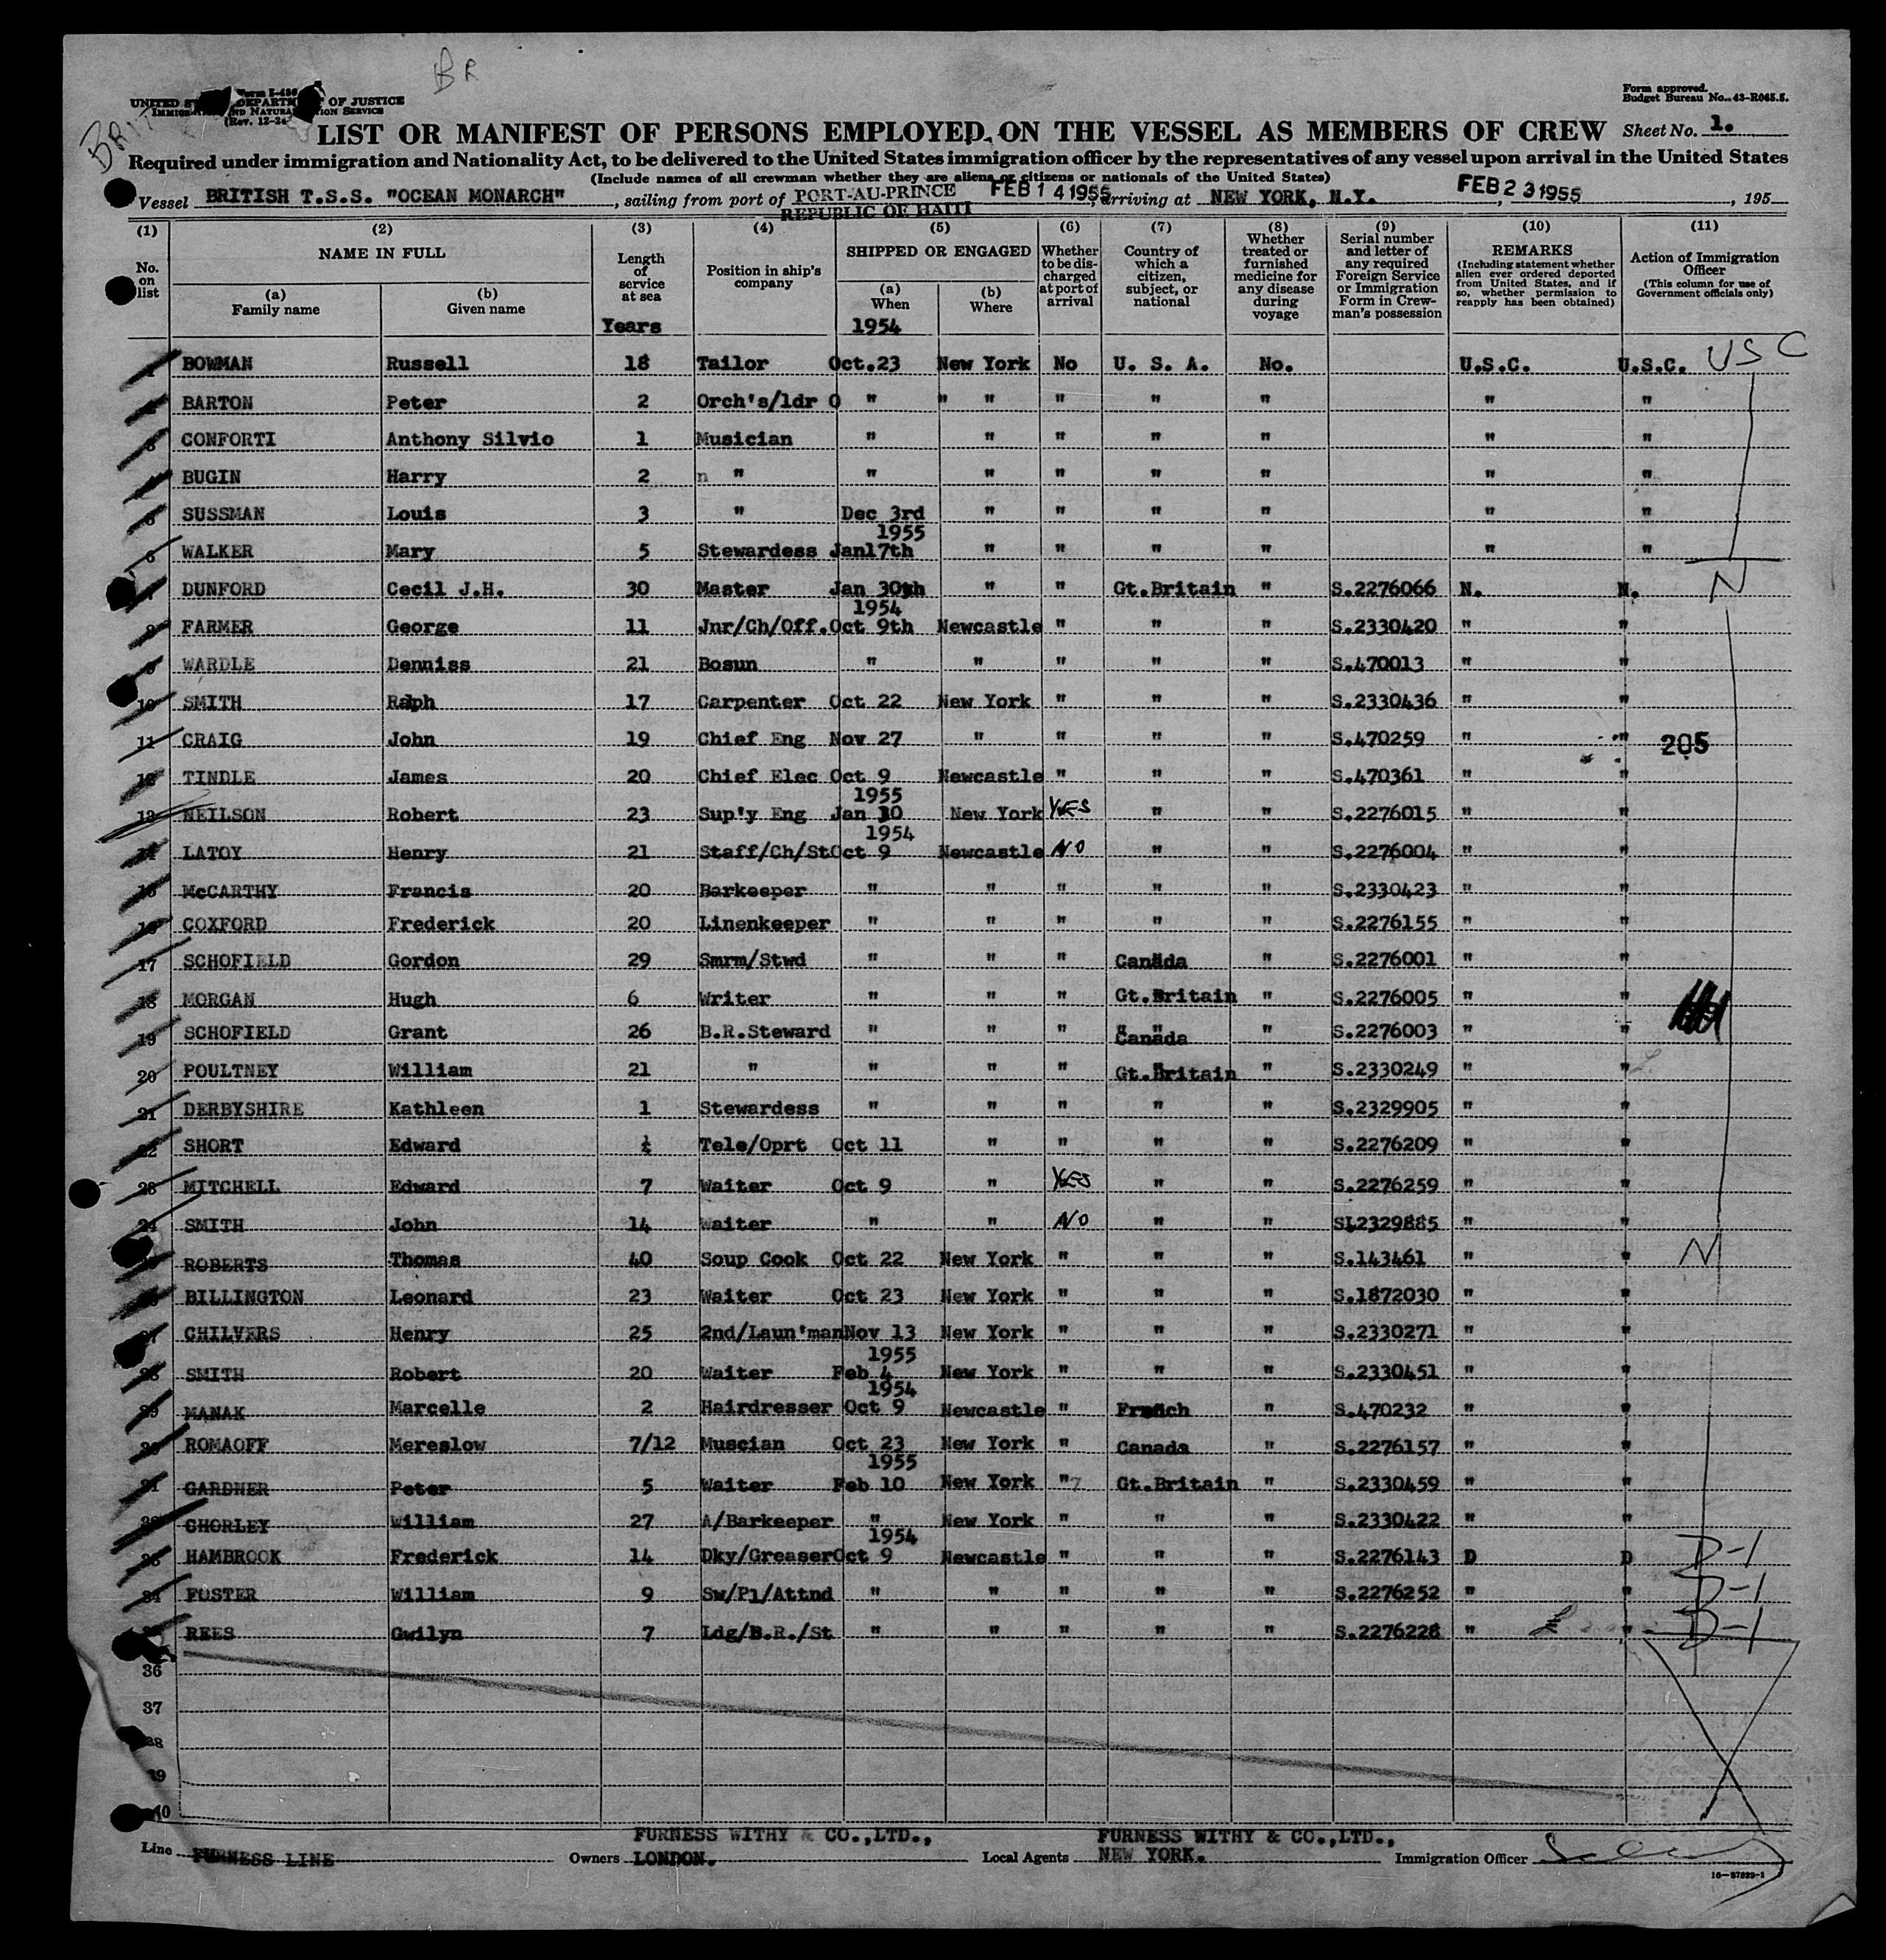 BR
BRIT
Form approved.
Budget Bureau No. 43-R065.5.
UNITED DEPARTMENT OF JUSTICE
IMMIGRATION AND NATURALIZATION SERVICE
LIST OR MANIFEST OF PERSONS EMPLOYED ON THE VESSEL AS MEMBERS OF CREW Sheet No. 1.
Required under immigration and Nationality Act, to be delivered to the United States immigration officer by the representatives of any vessel upon arrival in the United States
(Include names of all crewman whether they are aliens or citizens or nationals of the United States)
Vessel BRITISH T.S.S. "OCEAN MONARCH", sailing from port of PORT-AU-PRINCE FEB 14 1955, arriving at NEW YORK, N.Y. FEB 23 1955, 195
REPUBLIC OF HAITI
(1) (2) (3) (4) (5) (6) (7) (8) (9) (10) (11)
No. on list
NAME IN FULL
(a) Family name
(b) Given name
Length of service at sea
Years
Position in ship's company
SHIPPED OR ENGAGED
(a) When
1954
(b) Where
Whether to be discharged at port of arrival
Country of which a citizen, subject, or national
Whether treated or furnished medicine for any disease during voyage
Serial number and letter of any required Foreign Service or Immigration Form in Crewman's possession
REMARKS
(Including statement whether alien ever ordered deported from United States, and if so, whether permission to reapply has been obtained)
Action of Immigration Officer
(This column for use of Government officials only)
1 BOWMAN Russell 18 Tailor Oct.23 New York No U. S. A. No. U.S.C. U.S.C. USC
2 BARTON Peter 2 Orch's/ldr O " " " " " " " "
3 CONFORTI Anthony Silvio 1 Musician " " " " " " "
4 BUGIN Harry 2 n " " " " " " " "
5 SUSSMAN Louis 3 " Dec 3rd " " " " " "
1955
6 WALKER Mary 5 Stewardess Jan17th " " " " " "
7 DUNFORD Cecil J.H. 30 Master Jan 30th " " Gt.Britain " S.2276066 N. N. N
1954
8 FARMER George 11 Jnr/Ch/Off. Oct 9th Newcastle " " " S.2330420 " "
9 WARDLE Denniss 21 Bosun " " " " " S.470013 " "
10 SMITH Ralph 17 Carpenter Oct 22 New York " " " S.2330436 " "
11 CRAIG John 19 Chief Eng Nov 27 " " " " S.470259 " " 205
12 TINDLE James 20 Chief Elec Oct 9 Newcastle " " " S.470361 " "
1955
13 NEILSON Robert 23 Sup'y Eng Jan 30 New York YES " " S.2276015 " "
1954
14 LATOY Henry 21 Staff/Ch/St Oct 9 Newcastle NO " " S.2276004 " "
15 McCARTHY Francis 20 Barkeeper " " " " " S.2330423 " "
16 COXFORD Frederick 20 Linenkeeper " " " " " S.2276155 " "
17 SCHOFIELD Gordon 29 Smrm/Stwd " " " Canada " S.2276001 " "
18 MORGAN Hugh 6 Writer " " " Gt.Britain " S.2276005 " "
19 SCHOFIELD Grant 26 B.R.Steward " " " Canada " S.2276003 " "
20 POULTNEY William 21 " " " " Gt.Britain " S.2330249 " "
21 DERBYSHIRE Kathleen 1 Stewardess " " " " " S.2329905 " "
22 SHORT Edward Tele/Oprt Oct 11 " " " " S.2276209 " "
23 MITCHELL Edward 7 Waiter Oct 9 " YES " " S.2276259 " "
24 SMITH John 14 Waiter " " NO " " S.2329885 " "
ROBERTS Thomas 40 Soup Cook Oct 22 New York " " " S.143461 " " N
BILLINGTON Leonard 23 Waiter Oct 23 New York " " " S.1872030 " "
27 CHILVERS Henry 25 2nd/Laun'man Nov 13 New York " " " S.2330271 " "
1955
28 SMITH Robert 20 Waiter Feb 4 New York " " " S.2330451 " "
1954
29 MANAK Marcelle 2 Hairdresser Oct 9 Newcastle " French " S.470232 " "
30 ROMAOFF Mereslow 7/12 Muscian Oct 23 New York " Canada " S.2276157 " "
1955
31 GARDNER Peter 5 Waiter Feb 10 New York " Gt.Britain " S.2330459 " "
32 CHORLEY William 27 A/Barkeeper " New York " " " S.2330422 " "
1954
33 HAMBROOK Frederick 14 Dky/Greaser Oct 9 Newcastle " " " S.2276143 D D D-1
34 FOSTER William 9 Sw/Pl/Attnd " " " " " S.2276252 " " D-1
REES Gwilyn 7 Ldg/B.R./St " " " " " S.2276228 " " D-1
36
37
38
39
40
Line FURNESS LINE Owners FURNESS WITHY & CO.,LTD., LONDON. Local Agents FURNESS WITHY & CO.,LTD., NEW YORK. Immigration Officer
16—67829-1